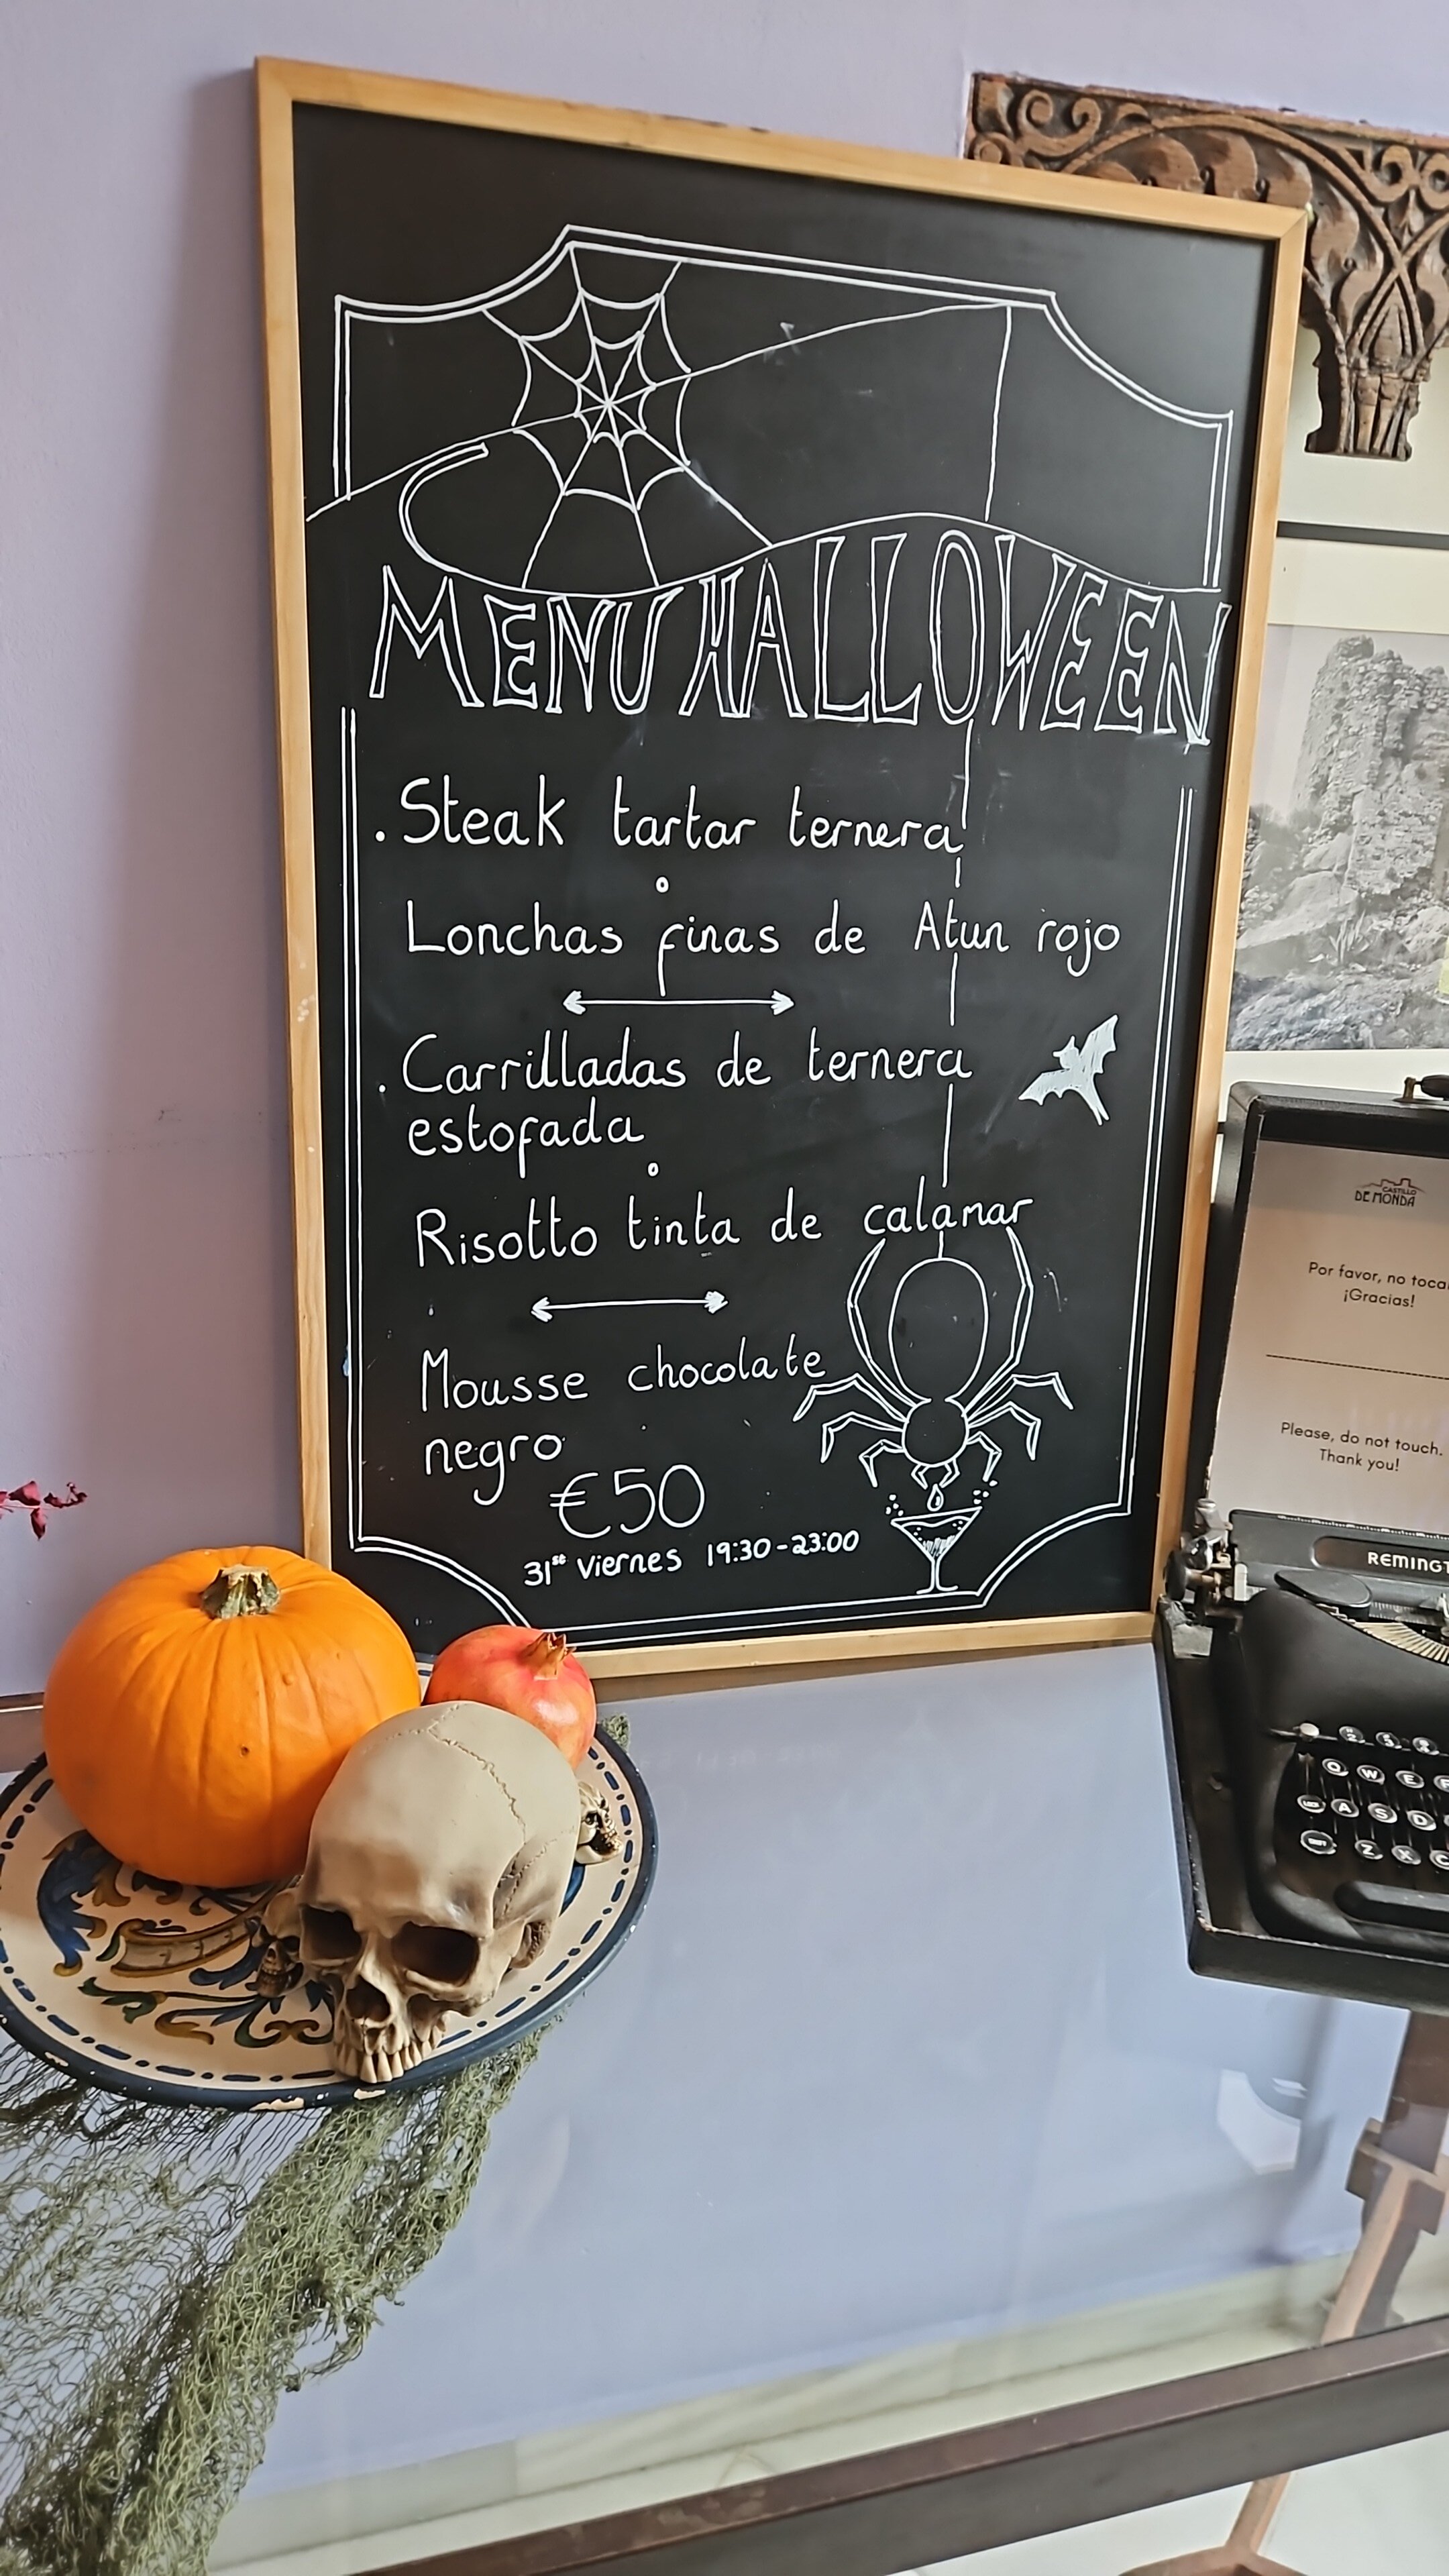 MENU HALLOWEEN
. Steak tartar ternera
o
Lonchas finas de Atun rojo
. Carrilladas de ternera
estofada
o
Risotto tinta de calamar
Mousse chocolate
negro
€50
31st Viernes 19:30-23:00
CASTILLO
DE MONDA
Por favor, no toca
¡Gracias!
Please, do not touch.
Thank you!
REMINGT
Q W E
A S D
Z X C